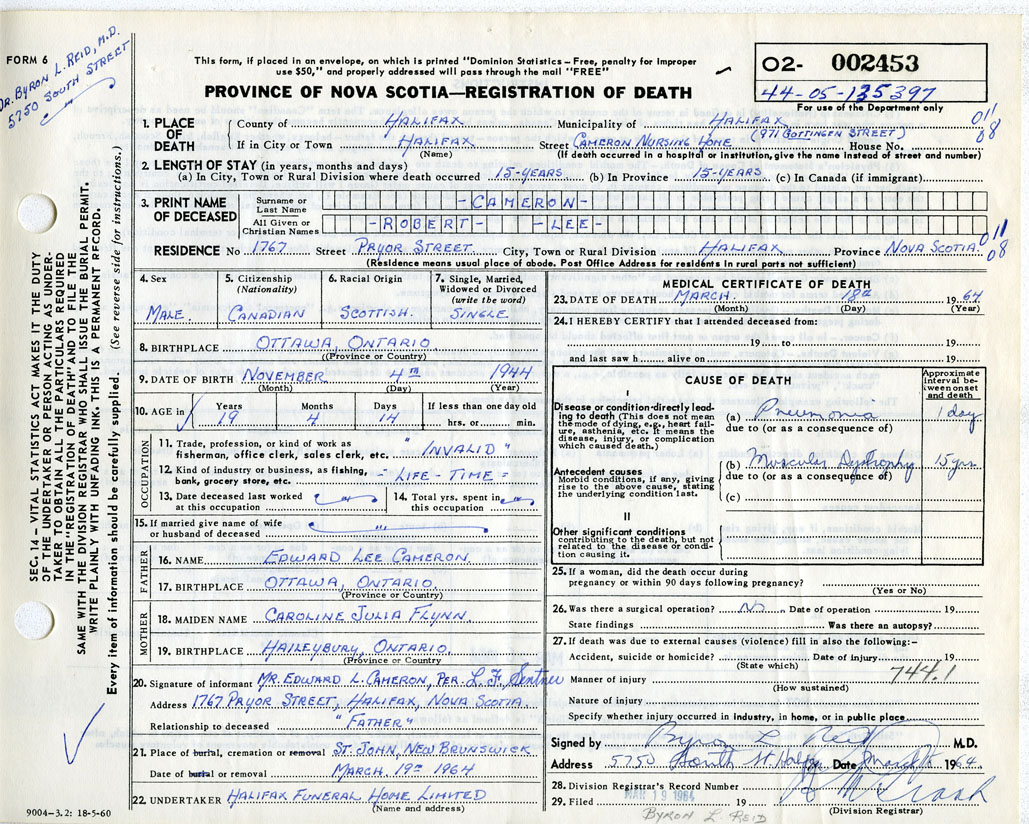 FORM 6
DR. BYRON L. REID, M.D.
5750 SOUTH STREET
This form, if placed in an envelope, on which is printed "Dominion Statistics—Free, penalty for improper
use $50," and properly addressed will pass through the mail "FREE"
PROVINCE OF NOVA SCOTIA—REGISTRATION OF DEATH
02- 002453
44-05-135397
For use of the Department only
011
08
1. PLACE OF DEATH
County of HALIFAX Municipality of HALIFAX
(971 GOTTINGEN STREET)
If in City or Town HALIFAX Street CAMERON NURSING HOME House No.
(Name) (If death occurred in a hospital or institution, give the name instead of street and number)
2. LENGTH OF STAY (in years, months and days)
(a) In City, Town or Rural Division where death occurred 15-YEARS (b) In Province 15-YEARS (c) In Canada (if immigrant)
3. PRINT NAME OF DECEASED
Surname or Last Name -CAMERON-
All Given or Christian Names -ROBERT- -LEE-
011
08
RESIDENCE No 1767 Street PRYOR STREET City, Town or Rural Division HALIFAX Province NOVA SCOTIA.
(Residence means usual place of abode. Post Office Address for residents in rural parts not sufficient)
4. Sex
MALE.
5. Citizenship (Nationality)
CANADIAN
6. Racial Origin
SCOTTISH.
7. Single, Married, Widowed or Divorced (write the word)
SINGLE
8. BIRTHPLACE OTTAWA, ONTARIO.
((Province or Country)
9. DATE OF BIRTH NOVEMBER 4TH 1944
(Month) (Day) (Year)
10. AGE in
Years Months Days If less than one day old
19 4 14 hrs. or min.
OCCUPATION
11. Trade, profession, or kind of work as
fisherman, office clerk, sales clerk, etc. "INVALID"
12. Kind of industry or business, as fishing,
bank, grocery store, etc. - LIFE - TIME -
13. Date deceased last worked
at this occupation
14. Total yrs. spent in
this occupation
15. If married give name of wife
or husband of deceased "
FATHER
16. NAME EDWARD LEE CAMERON.
17. BIRTHPLACE OTTAWA, ONTARIO.
(Province or Country)
MOTHER
18. MAIDEN NAME CAROLINE JULIA FLYNN
19. BIRTHPLACE HAILEYBURY, ONTARIO.
(Province or Country)
20. Signature of informant MR. EDWARD L. CAMERON, PER. L. F.
Address 1767 PRYOR STREET, HALIFAX, NOVA SCOTIA
Relationship to deceased "FATHER"
21. Place of burial, cremation or removal ST. JOHN, NEW BRUNSWICK
Date of burial or removal MARCH. 19TH 1964
22. UNDERTAKER HALIFAX FUNERAL HOME LIMITED
(Name and address)
9004-3.2: 18-5-60
MEDICAL CERTIFICATE OF DEATH
23. DATE OF DEATH MARCH. 18th 1964
(Month) (Day) (Year)
24. I HEREBY CERTIFY that I attended deceased from:
19 to 19
and last saw h alive on 19
CAUSE OF DEATH
Approximate interval between onset and death
I
Disease or condition directly leading to death (This does not mean the mode of dying, e.g., heart failure, asthenia, etc. It means the disease, injury, or complication which caused death.)
(a) Pneumonia 1 day
due to (or as a consequence of)
Antecedent causes
Morbid conditions, if any, giving rise to the above cause, stating the underlying condition last.
(b) Muscular Dystrophy 15 yrs.
due to (or as a consequence of)
(c)
II
Other significant conditions
contributing to the death, but not related to the disease or condition causing it.
25. If a woman, did the death occur during
pregnancy or within 90 days following pregnancy?
(Yes or No)
26. Was there a surgical operation? No Date of operation 19
State findings Was there an autopsy?
27. If death was due to external causes (violence) fill in also the following:—
Accident, suicide or homicide? Date of injury 19
(State which)
744.1
Manner of injury
(How sustained)
Nature of injury
Specify whether injury occurred in industry, in home, or in public place
Signed by Byron L Reid M.D.
Address 5750 South St Halifax Date March 1964.
28. Division Registrar's Record Number
29. Filed MAR 19 1964 19
(Division Registrar)
BYRON L. REID
SEC. 14 – VITAL STATISTICS ACT MAKES IT THE DUTY
OF THE UNDERTAKER OR PERSON ACTING AS UNDER-
TAKER TO OBTAIN ALL THE PARTICULARS REQUIRED
IN THE "REGISTRATION OF DEATH" AND TO FILE THE
SAME WITH THE DIVISION REGISTRAR WHO SHALL ISSUE THE BURIAL PERMIT.
WRITE PLAINLY WITH UNFADING INK. THIS IS A PERMANENT RECORD.
Every item of information should be carefully supplied. (See reverse side for instructions.)